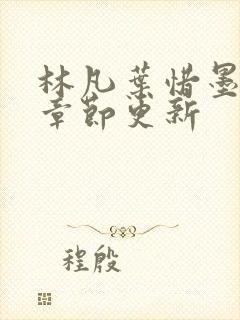 林凡葉惜墨
章節更新
程殷